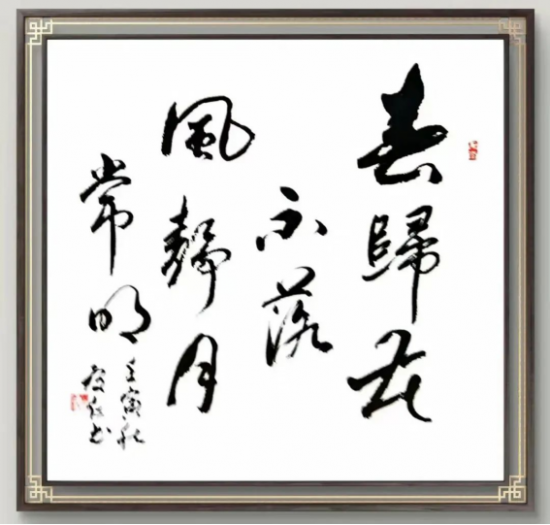 春歸花
不落
風靜月
常明
壬寅秋
书